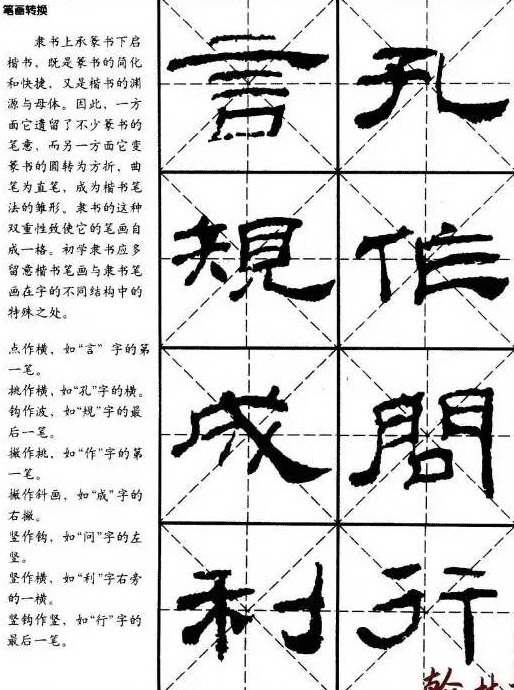 笔画转换
隶书上承篆书下启
楷书，既是篆书的简化
和快捷，又是楷书的渊
源与母体。因此，一方
面它遗留了不少篆书的
笔意，而另一方面它变
篆书的圆转为方折，曲
笔为直笔，成为楷书笔
法的雏形。隶书的这种
双重性致使它的笔画自
成一格。初学隶书应多
留意楷书笔画与隶书笔
画在字的不同结构中的
特殊之处。
点作横，如“言”字的第
一笔。
挑作横，如“孔”字的横。
钩作波，如“规”字的最
后一笔。
撇作挑，如“作”字的第
一笔。
撇作斜画，如“成”字的
右撇。
竖作钩，如“问”字的左
竖。
竖作横，如“利”字右旁
的一横。
竖钩作竖，如“行”字的
最后一笔。
言 孔
規 作
成 問
利 行